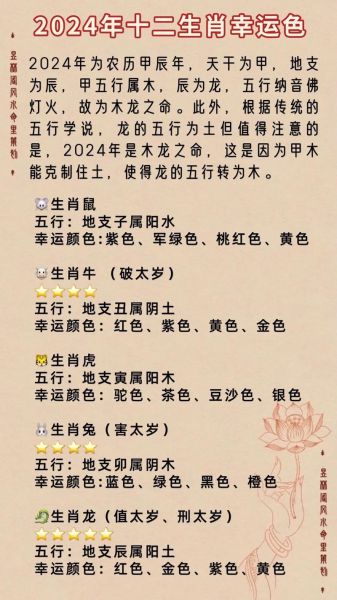 2024年十二生肖幸运色
2024年为农历甲辰年，天干为甲，地支
为辰，甲五行属木，辰为龙，五行纳音佛
灯火，故为木龙之命。此外，根据传统的
五行学说，龙的五行为土但值得注意的
是，2024年是木龙之命，这是因为甲木
能克制住土，使得龙的五行转为木。
生肖鼠
五行：地支子属阳水
幸运颜色:紫色、军绿色、桃红色、黄色
生肖牛 （破太岁）
五行：地支丑属阴土
幸运颜色：红色、紫色、黄色、金色
生肖虎
五行：地支寅属阳木
幸运颜色：驼色、茶色、豆沙色、银色
生肖兔（害太岁）
五行：地支卯属阴木
幸运颜色:蓝色、绿色、黑色、橙色
生肖龙（值太岁、刑太岁）
五行：地支辰属阳土
幸运颜色：红色、金色、紫色、黄色